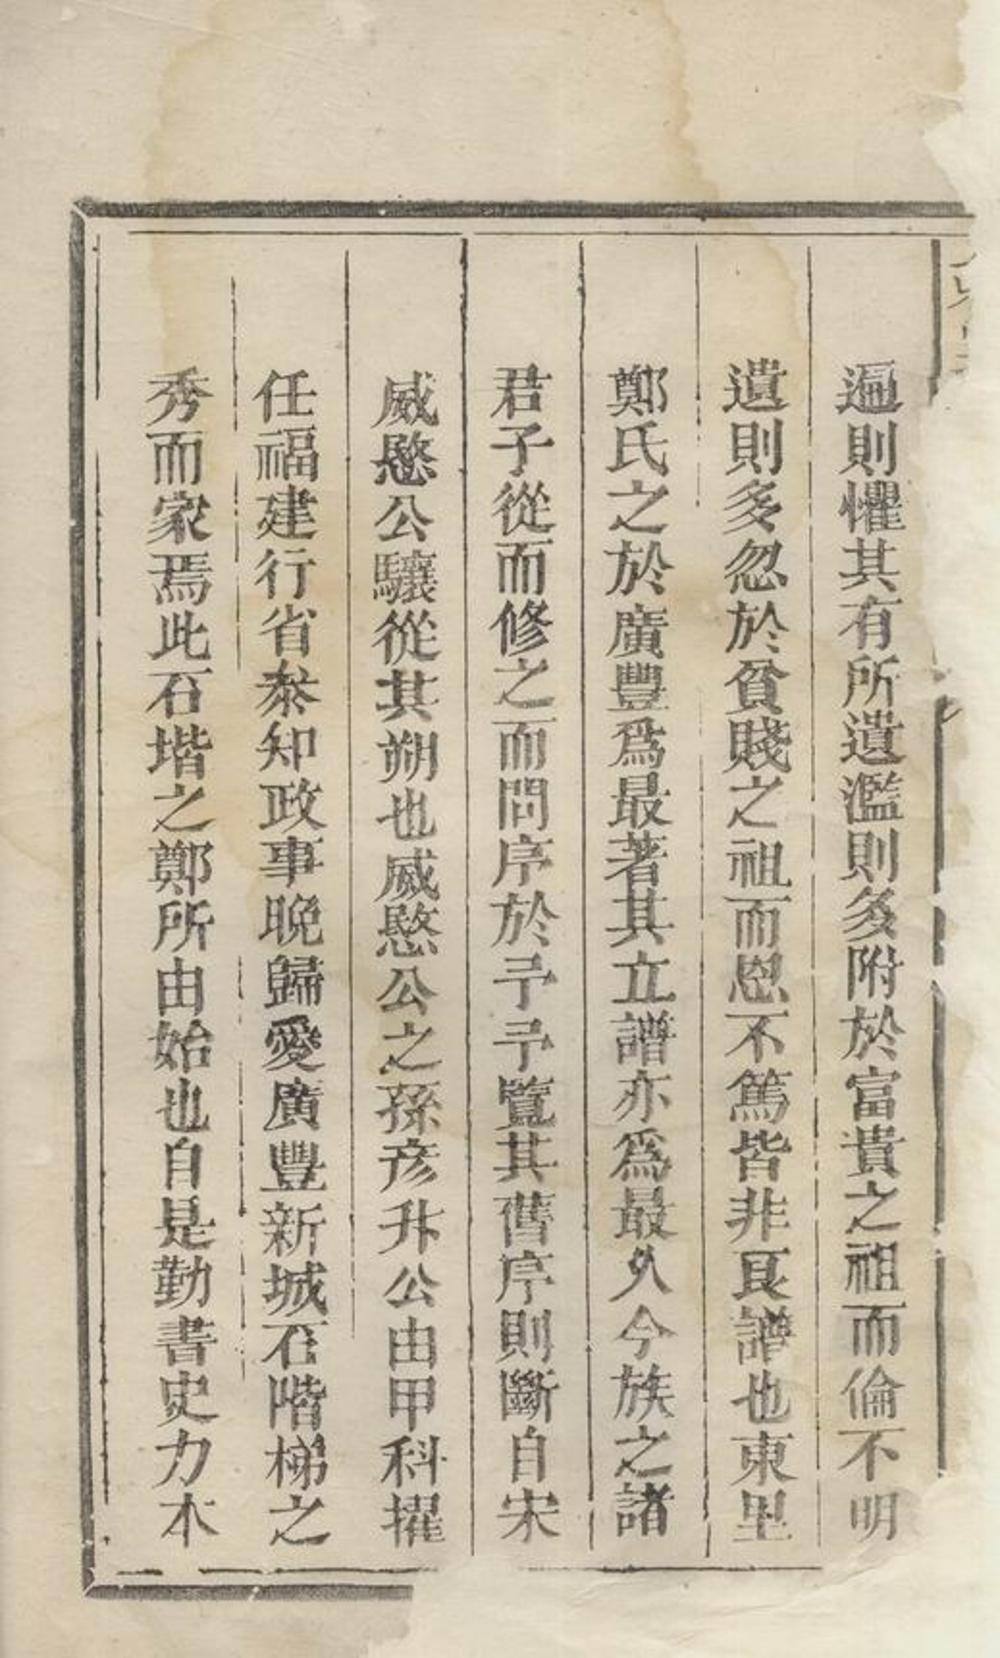 遍則懼其有所遺濫則多附於富貴之祖而倫不明
遺則多忽於貧賤之祖而恩不篤皆非良譜也東里
鄭氏之於廣豐爲最著其立譜亦爲最久今族之諸
君子從而修之而問序於予予覽其舊序則斷自宋
威愍公驤從其朔也威愍公之孫彦升公由甲科擢
任福建行省叅知政事晚歸愛廣豐新城石階梯之
秀而家焉此石堦之鄭所由始也自是勤書史力本